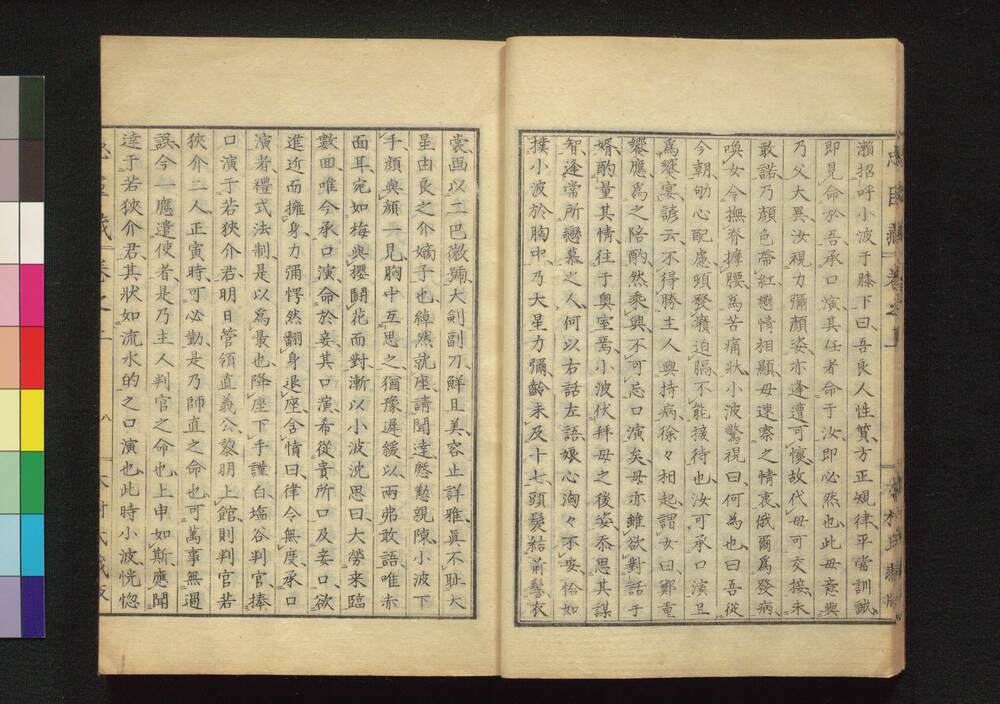 瀬招呼小波于膝下曰吾良人性質方正規律平當訓誡
即見命於吾承口演其任者命于汝即必然也此母意與
乃父大異汝視力彌顔姿亦逢遭可懷故代母可交接未
敢諾乃顔色帶紅戀情相顯母速察之情衷俄爾爲發病
喚女令撫脊撑腰爲苦痛狀小波驚視曰何為也曰吾從
今朝劬心配慮頭發癪迫膈不能接待也汝可承口演且
爲饗宴諺云不得勝主人與持病徐々相起謂女曰鄭重
饗應爲之陪酌然乘興不可忘口演矣母亦雖欲對話于
婿酌量其情往于奥室焉小波伏拜母之後姿忝思其謀
智逢當所戀慕之人何以右話左語娘心洶々不安恰如
撲小波於胸中乃大星力彌齡未及十七頭髮結前髻衣
裳画以二巴徽號大剣副刀鮮且美容止詳雅眞不耻大
星由良之介嫡子也綽然就座請聞達懸懃親陳小波下
手顔與顔一見胸中互思之猶豫遲緩以両弗敢語唯赤
面耳宛如梅與櫻鬪花而對漸以小波沈思曰大勞來臨
數回唯今承口演命於妾其口演希從貴所口及妾口欲
進近而擁身力彌愕然翻身退座含憤曰律令無度承口
演者禮式法制是以爲最也降座下手謹白塩谷判官捧
口演于若狹介君明日管領直義公黎明上館則判官若
狹介二人正寅時可必勤是乃師直之命也可萬事無過
誤今一應遣使者是乃主人判官之命也上申如斯應聞
達于若狹介君其状如流水的之口演也此時小波恍惚